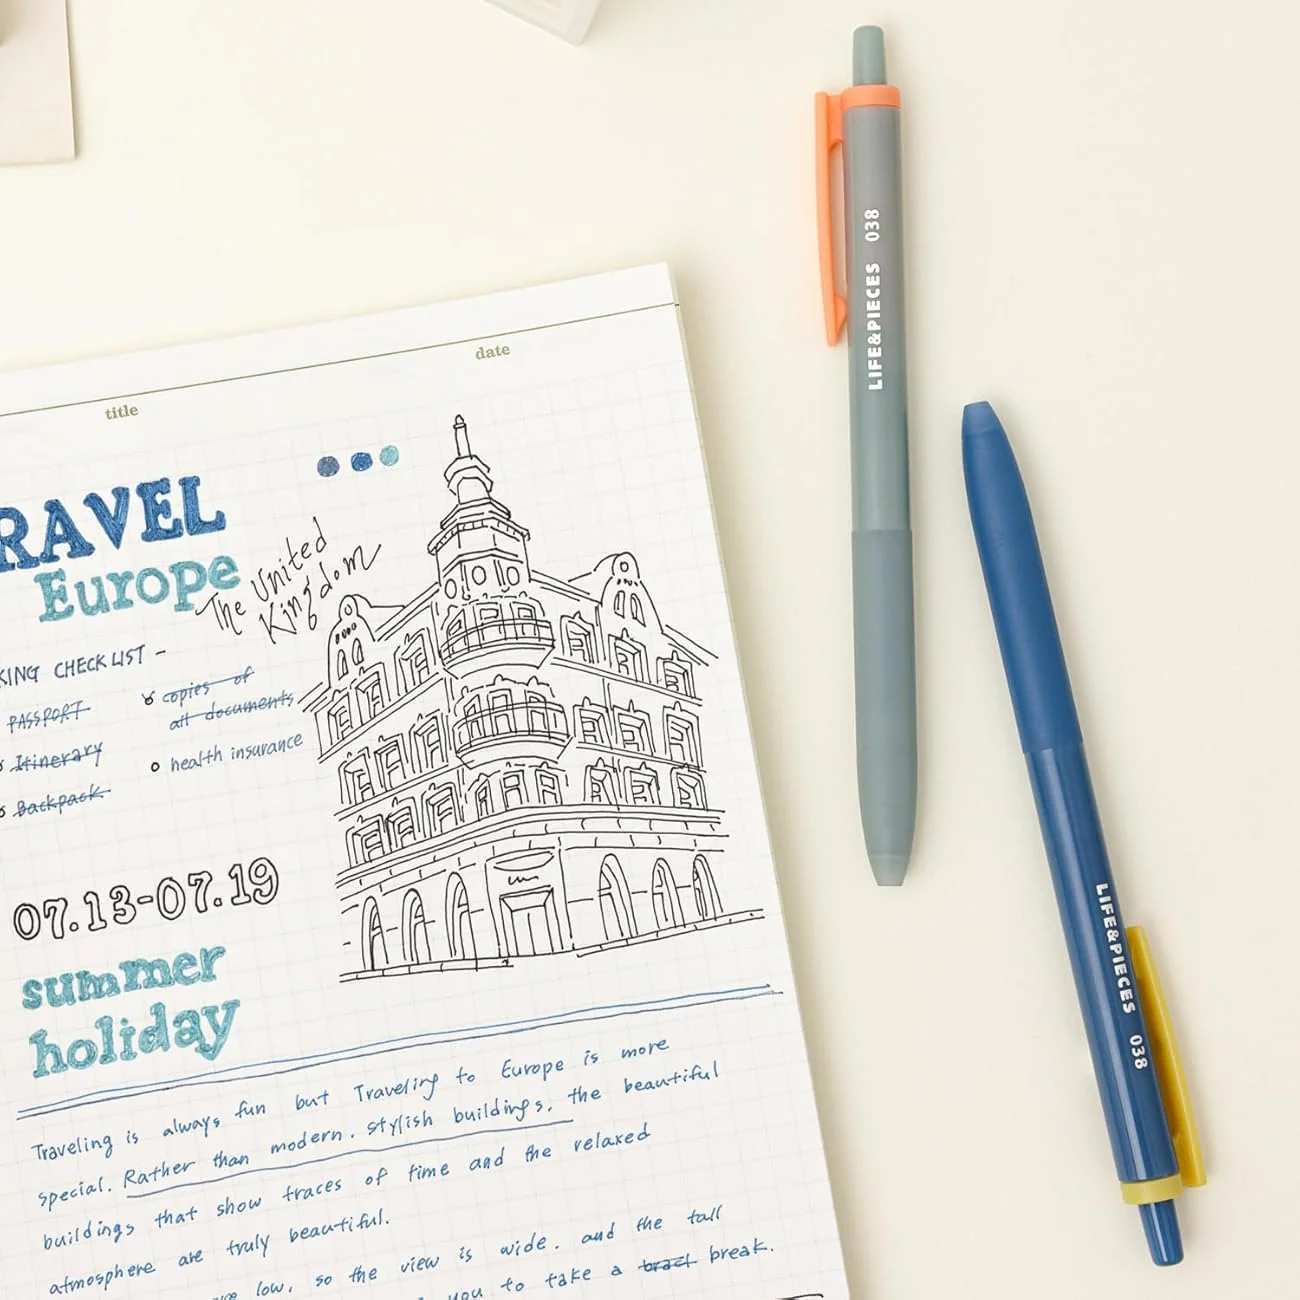 title
date
RAVEL
Europe
The United
Kingdom
KING CHECKLIST -
PASSPORT
Itinerary
Backpack
copies of
all documents
health insurance
07.13-07.19
summer
holiday
Traveling is always fun but Traveling to Europe is more
special. Rather than modern. stylish buildings. the beautiful
buildings that show traces of time and the relaxed
atmosphere are truly beautiful.
low, so the view is wide. and the tall
you to take a break.
LIFE&PIECES 038
LIFE&PIECES 038